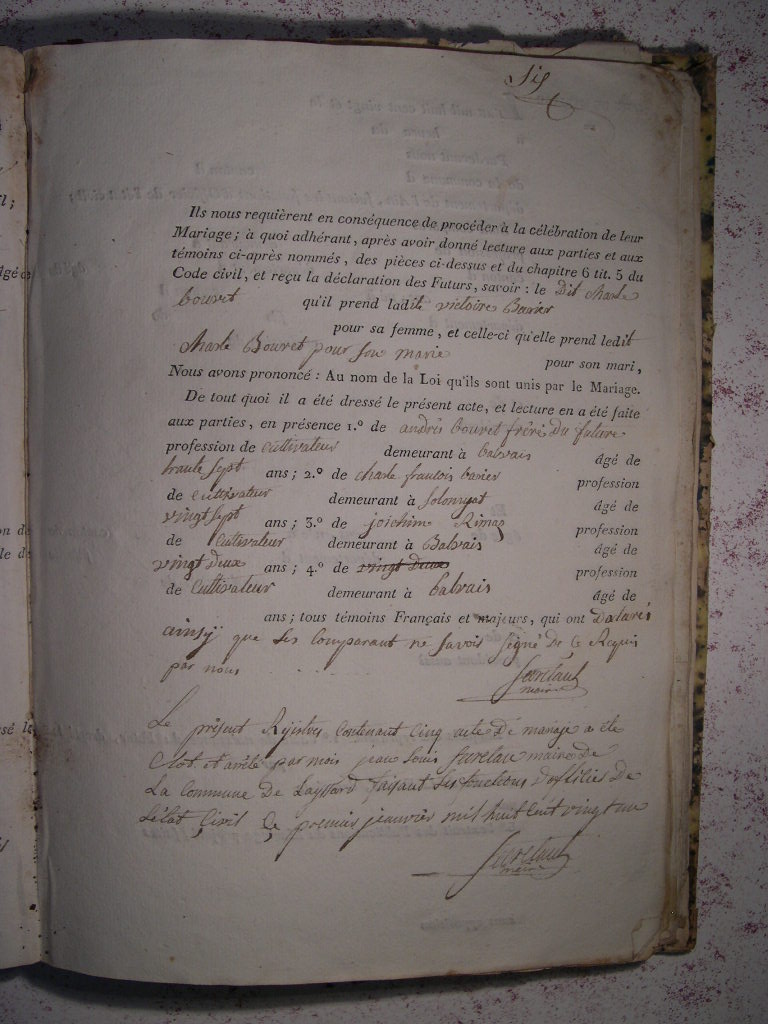 Six
Ils nous requièrent en conséquence de procéder à la célébration de leur
Mariage; à quoi adhérant, après avoir donné lecture aux parties et aux
témoins ci-après nommés, des pièces ci-dessus et du chapitre 6 tit. 5 du
Code civil, et reçu la déclaration des Futurs, savoir : le Dit charle
bouvet qu'il prend ladite victoire Bavier
pour sa femme, et celle-ci qu'elle prend ledit
charle Bouvet pour son marie pour son mari,
Nous avons prononcé : Au nom de la Loi qu'ils sont unis par le Mariage.
De tout quoi il a été dressé le présent acte, et lecture en a été faite
aux parties, en présence 1.º de andrés bouvet frère du future
profession de cultivateur demeurant à balvais âgé de
trante sept ans; 2.º de charle francois bavier profession
de cultivateur demeurant à Solonyat âgé de
vingt sept ans; 3.º de joichime Rimaz profession
de cultivateur demeurant à Balvais âgé de
vingt deux ans; 4.º de vingt deux profession
de cultivateur demeurant à balvais âgé de
ans; tous témoins Français et majeurs, qui ont
ainsy que les Comparant ne Savoir Signé de ce Requis
par nous
Secretant
maire
Le présent Contenant Cinq acte De mariaje a été
Clot et arrêté par mois jean Louis Secretan maire de
La Commune De Leyssard faisant les fonctions D'officies De
L'état Civil Ce premier janvier mil huit Cent vingt un
Secretant
maire